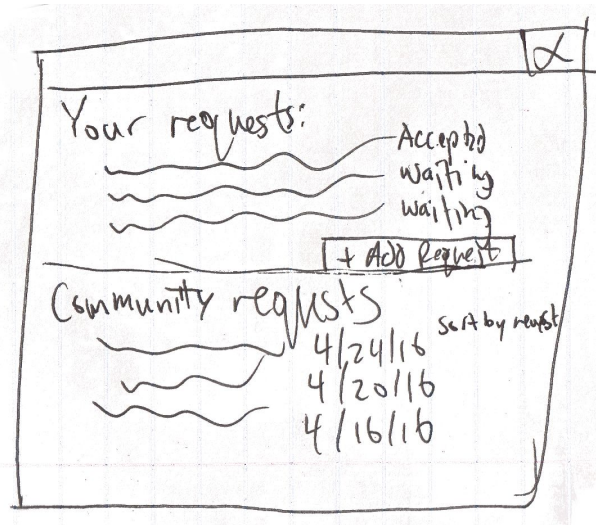 X
Your requests:
Accepted
waiting
waiting
+ Add Request
Community requests
sort by newest
4/24/16
4/20/16
4/16/16